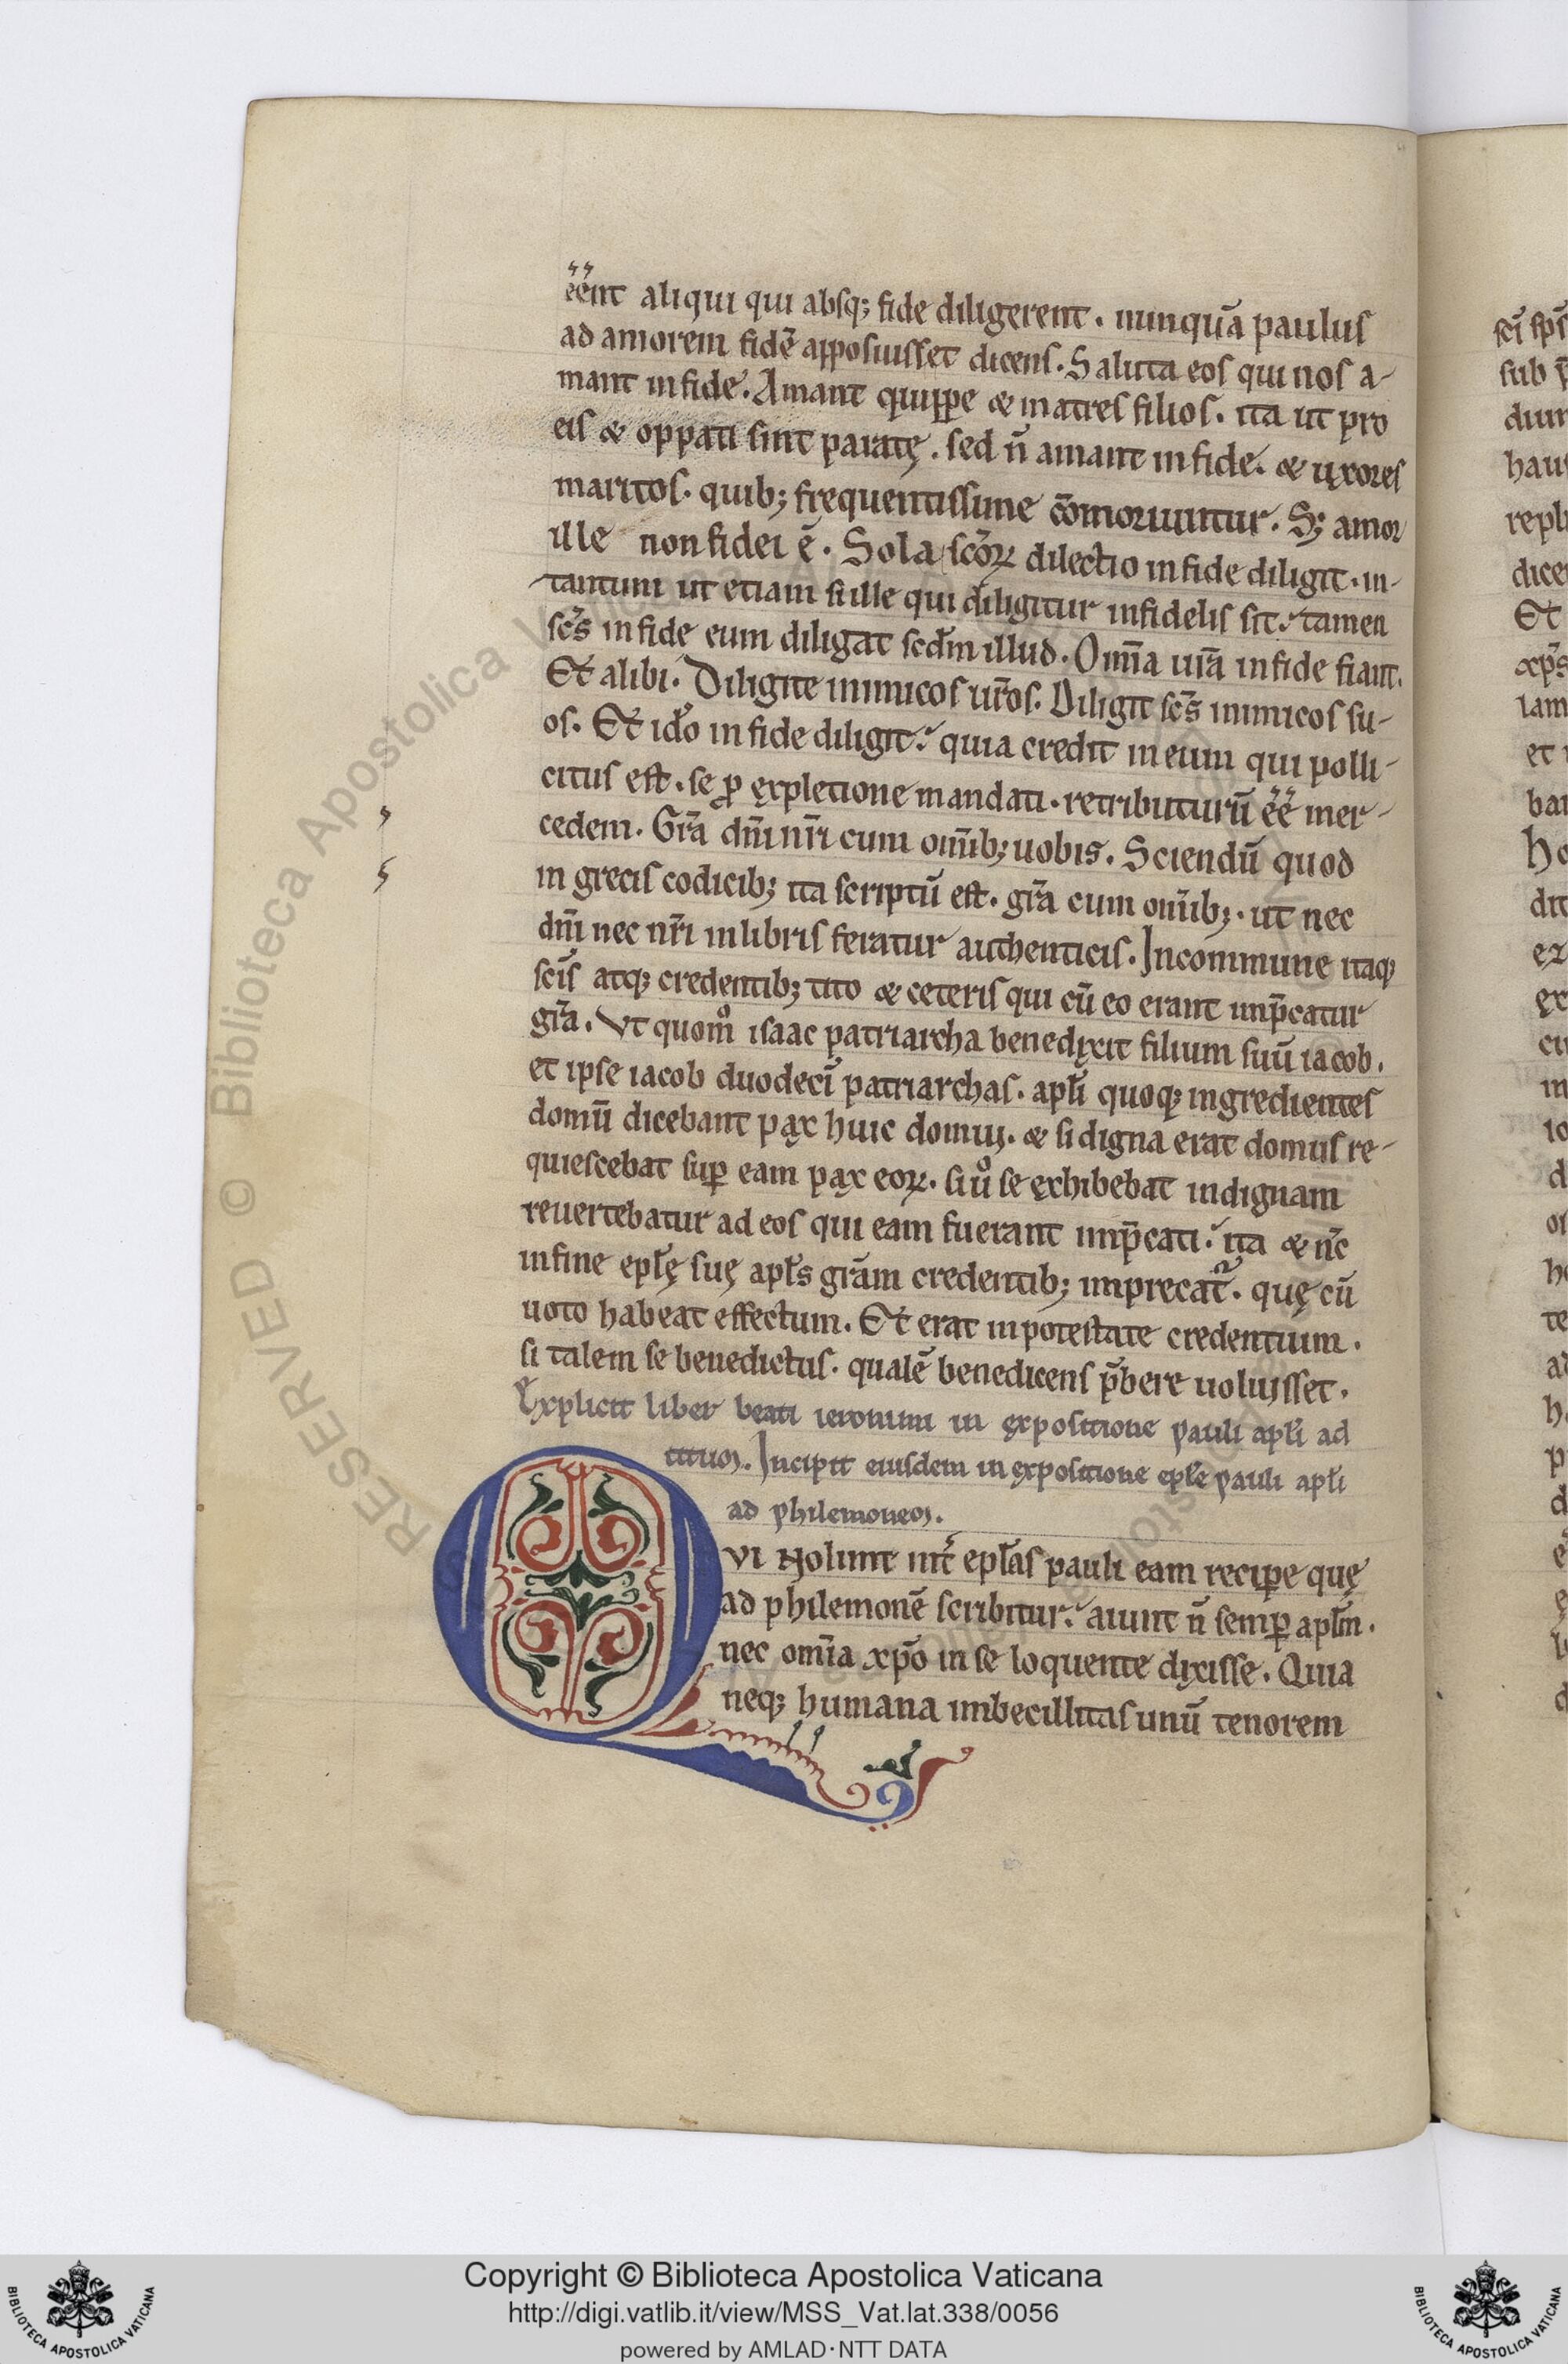 eent aliqui qui absq; fide diligerent. nunquā paulus
ad amorem fidē apposuisset dicens. Saluta eos qui nos a-
mant in fide. Amant quippe & matres filios. ita ut pro
eis & oppati sint paratę. sed n̄ amant in fide. & uxores
maritos. quib; frequentissime cōmoriuntur. S; amor
ille non fidei ē. Sola scōꝝ dilectio in fide diligit. in-
tantum ut etiam si ille qui diligitur infidelis sit. tamen
sc̄s in fide eum diligat scdm illud. Omīa urā in fide fiant.
Et alibi. Diligite inimicos uros. Diligit sc̄s inimicos su-
os. Et ido in fide diligit. quia credit in eum qui polli-
citus est. se ꝓ expletione mandati. retributurū ēē mer-
cedem. Grā dn̄i nr̄i cum omīb; uobis. Sciendū quod
in grecis codicib; ita scriptū est. grā cum omīb;. ut nec
dn̄i nec nr̄i in libris feratur authenticis. Incommune itaq;
scīs atq; credentib; tito & ceteris qui cū eo erant imp̄catur
grā. Vt quom̊ isaac patriarcha benedixit filium suū iacob.
et ipse iacob duodecī patriarchas. apl̄i quoq; ingredientes
domū dicebant pax huic domui. & si digna erat domus re-
quiescebat suꝑ eam pax eoꝝ. si ů se exhibebat indignam
reuertebatur ad eos qui eam fuerant imp̄cati. ita & nc̄
in fine epl̄ę suę apl̄s grām credentib; imprecat̄. quę cū
uoto habeat effectum. Et erat in potestate credentium.
si talem se benedictus. qualē benedicens p̄bere uoluisset.
Explicit liber beati ieronimi in expositione pauli apl̄i ad
titum. Incipit eiusdem in expositione epl̄e pauli apl̄i
ad philemonem.
QVI Nolunt int̄ epl̄as pauli eam reciꝑe quę
ad philemonē scribitur. aiunt n̄ semꝑ apl̄m.
nec omīa xp̄o in se loquente dixisse. Quia
neq; humana imbecillitas unū tenorem
scī
sub
Et
et
RESERVED © Biblioteca Apostolica Vaticana
Copyright © Biblioteca Apostolica Vaticana
http://digi.vatlib.it/view/MSS_Vat.lat.338/0056
powered by AMLAD·NTT DATA
BIBLIOTECA APOSTOLICA VATICANA
BIBLIOTECA APOSTOLICA VATICANA